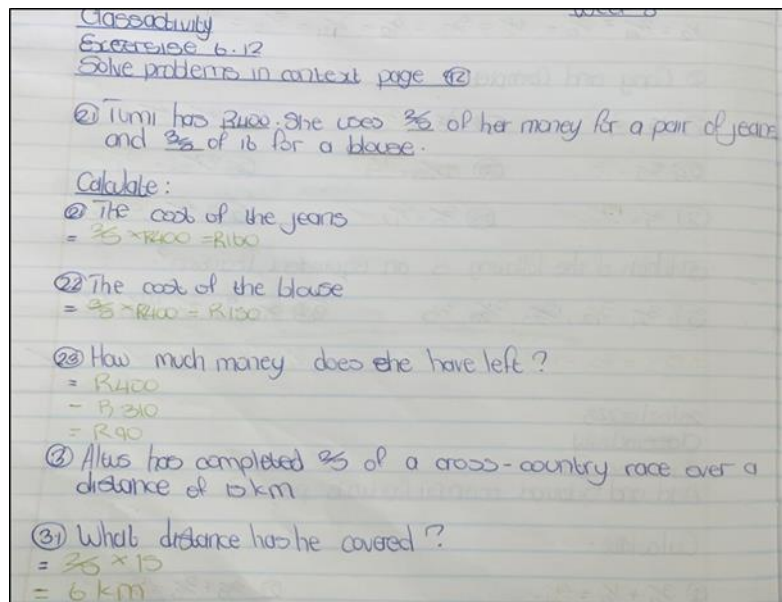 Classactivity
Exercise 6.12
Solve problems in context page
② Tumi has R400. She uses 2/5 of her money for a pair of jeans
and 3/8 of it for a blouse.
Calculate:
The cost of the jeans
= 2/5 × R400 = R160
22 The cost of the blouse
= 3/8 × R400 = R150
23 How much money does she have left?
= R400
- R310
= R90
③ has completed 2/5 of a cross-country race over a
distance of 15km
31 What distance has he covered?
= 2/5 × 15
= 6 km